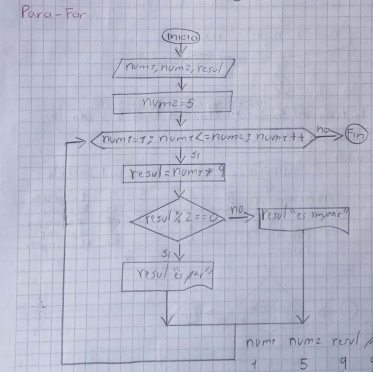 Para-For
Inicio
num1, num2, resul
num2=5
num1=1; num1<=num2; num1++
no
Fin
si
resul=num1*9
resul%2==0
no
resul "es impar"
si
resul "es par"
num1 num2 resul
1 5 9